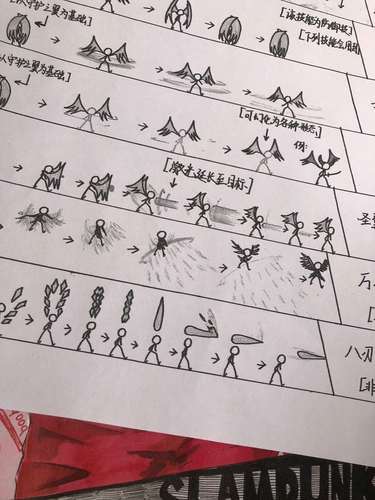 [该技能为防御技]
以守护之翼为基础]
[下列技能全用
以守护之翼为基础]
[可幻化为各种形态]
例:
[激光延长至目标]
圣
万
八刃
[非
SLAM DUNK